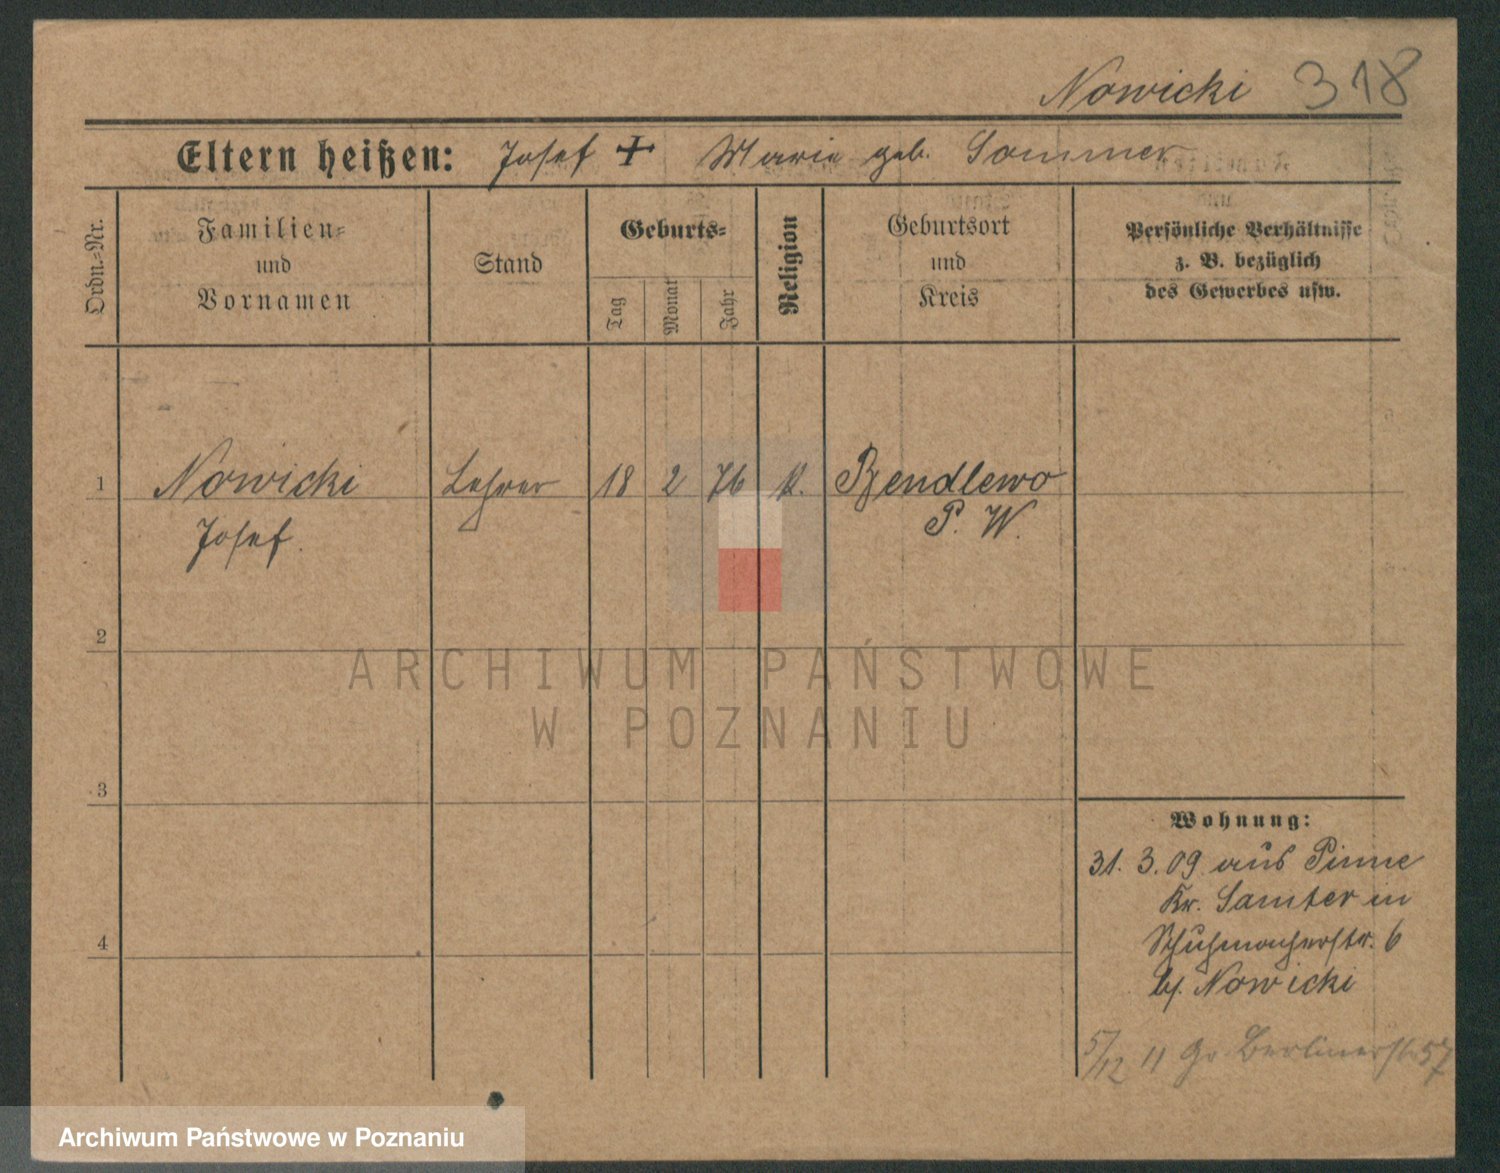 Nowicki 318
Eltern heißen: Josef + Marie geb. Sommer
Ordn.-Nr.
Familien- und Vornamen
Stand
Geburts-
Tag
Monat
Jahr
Religion
Geburtsort und Kreis
Persönliche Verhältnisse
z. B. bezüglich
des Gewerbes usw.
1 Nowicki Lehrer 18 2 76 k. Bendlewo
Josef. P. W.
2
ARCHIWUM PAŃSTWOWE
W POZNANIU
3
Wohnung:
31. 3. 09 aus Pinne
Kr. Samter in
4
Schuhmacherstr. 6
b/. Nowicki
5/12 11 Gr Berlinerstr 57
Archiwum Państwowe w Poznaniu